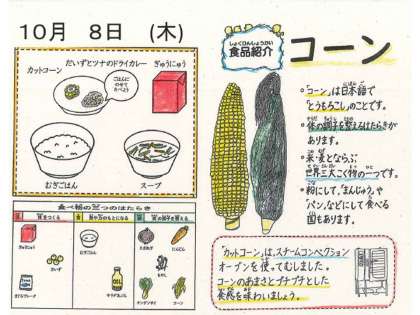 10月 8日 (木)
だいずとツナのドライカレー
カットコーン
ぎゅうにゅう
ごはんに
のせて
たべよう
むぎごはん
スープ
食べ物の三つのはたらき
体をつくる
体の調子を整える
ぎゅうにゅう
だいず
むぎごはん
たまねぎ
にんじん
コーン
しょくひんしょうかい
食品紹介
コーン
・「コーン」は日本語で
「とうもろこし」のことです。
・体の調子を整えるはたらきが
あります。
・米・麦とならぶ
世界三大こく物の一つです。
・粉にして、「まんじゅう」や
「パン」などにして食べる
国もあります。
「カットコーン」は、スチームコンベクション
オーブンを使ってむしました。
コーンのあまさとプチプチとした
食感を味わいましょう。